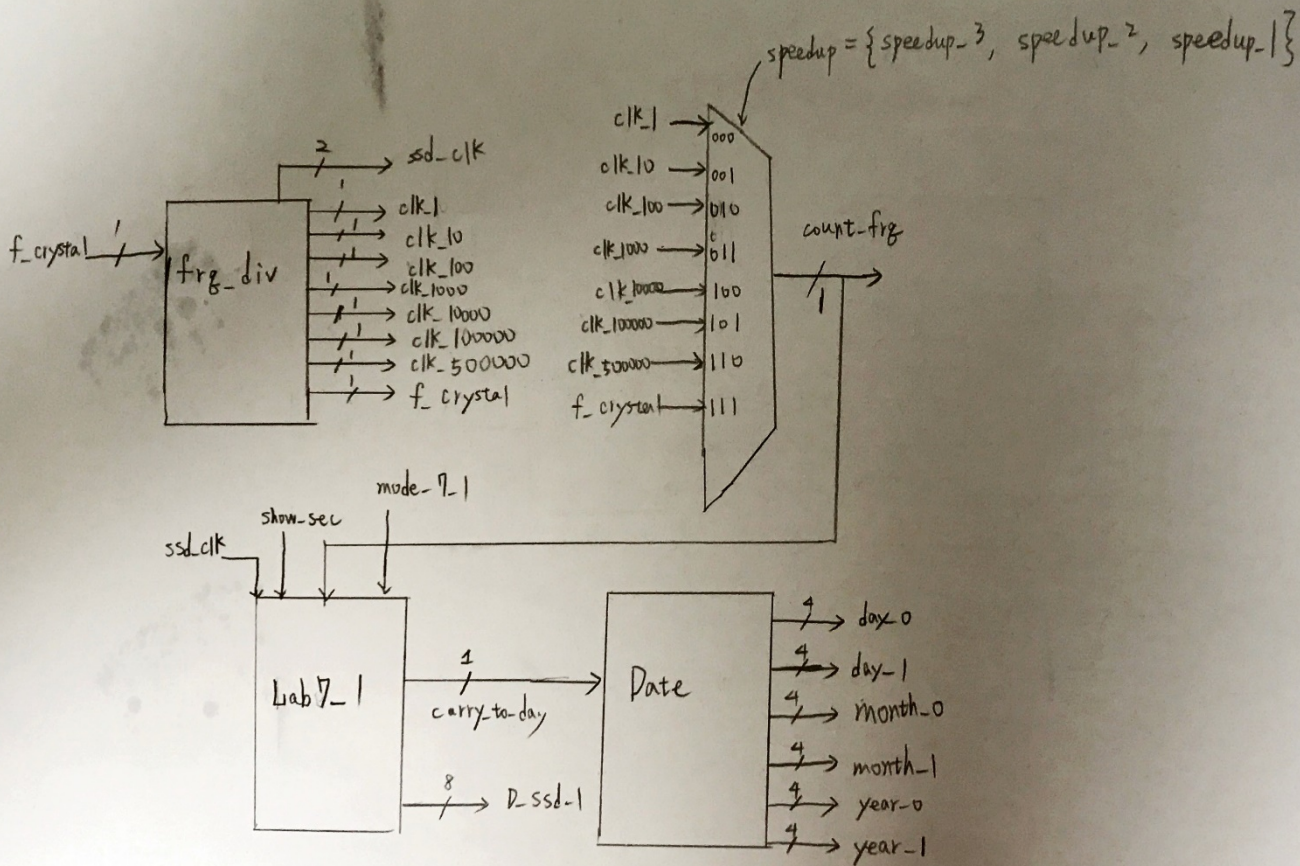 speedup = {speedup_3, speedup_2, speedup_1}
2
ssd_clk
f_crystal
1
frq_div
1
clk_1
1
clk_10
1
clk_100
1
clk_1000
1
clk_10000
1
clk_100000
1
clk_500000
1
f_crystal
clk_1
000
clk_10
001
clk_100
010
clk_1000
011
clk_10000
100
clk_100000
101
clk_500000
110
f_crystal
111
count_frq
1
ssd_clk
show_sec
mode_7_1
Lab7_1
1
carry_to_day
8
D_ssd_1
Date
4
day_0
4
day_1
4
month_0
4
month_1
4
year_0
4
year_1